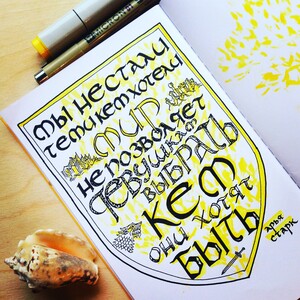 мы не стали
теми кем хотели
мир
не позволяет
девушкам
выбрать
кем
они хотят
быть
арья
старк